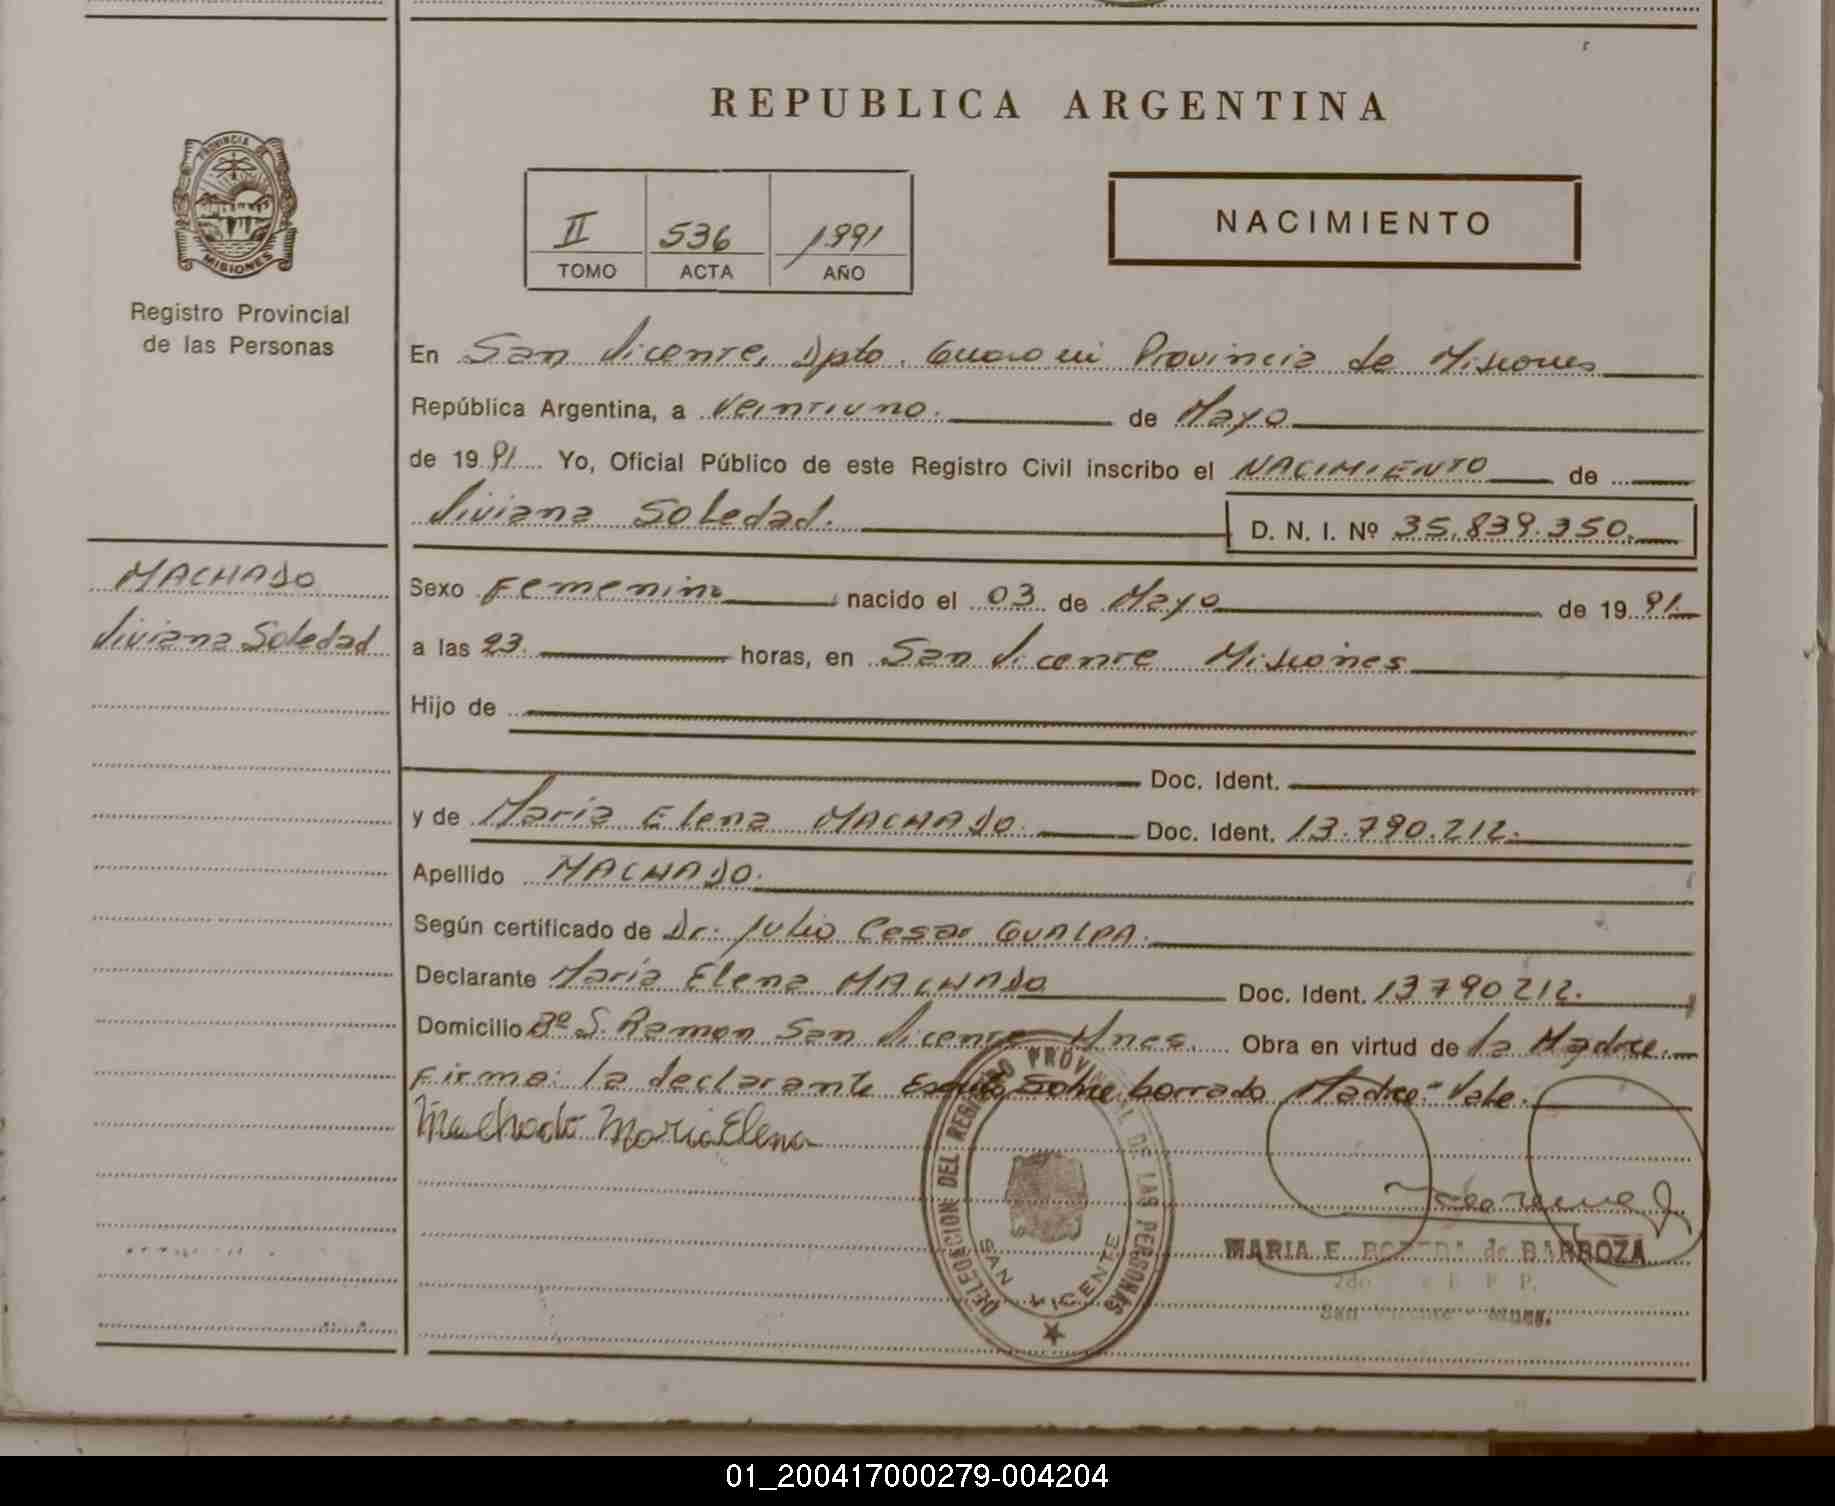 REPUBLICA ARGENTINA
PROVINCIA DE
MISIONES
Registro Provincial
de las Personas
II 536 1991
TOMO ACTA AÑO
NACIMIENTO
En San Vicente, Dpto. Guarani Provincia de Misiones
República Argentina, a Veintiuno. de Mayo
de 1991 Yo, Oficial Público de este Registro Civil inscribo el NACIMIENTO de
Viviana Soledad. D. N. I. Nº 35.839.350.
MACHADO
Viviana Soledad
Sexo Femenino nacido el 03 de Mayo de 1991.
a las 23. horas, en San Vicente Misiones
Hijo de
Doc. Ident.
y de Maria Elena MACHADO. Doc. Ident. 13.790.212.
Apellido MACHADO.
Según certificado de Dr. Julio Cesar GUALPA.
Declarante Maria Elena MACHADO Doc. Ident. 13790212.
Domicilio Bº S. Ramon San Vicente Mnes. Obra en virtud de la Madre.
Firma: la declarante sobre borrado Madre-Vale.
Machado Maria Elena
DELEGACION DEL REGISTRO PROVINCIAL DE LAS PERSONAS
SAN VICENTE
MARIA E. de BARBOZA
2do
San Vicente - Mnes.
01_200417000279-004204